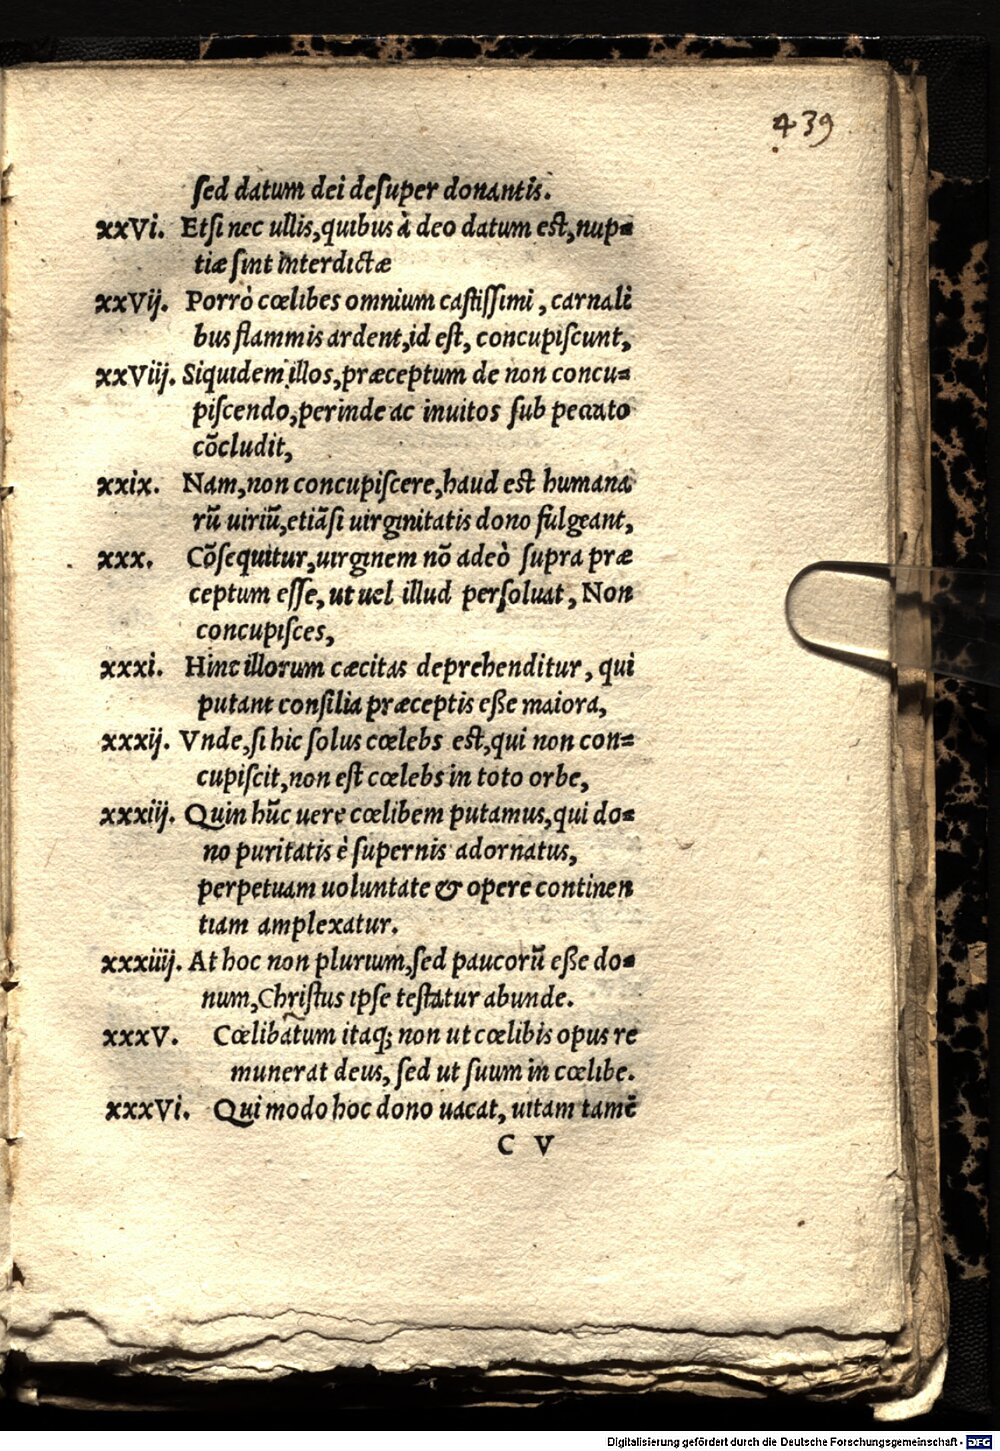 439
sed datum dei desuper donantis.
xxVi. Etsi nec ullis, quibus à deo datum est, nup=
tiæ sint interdictæ
xxVij. Porrò cœlibes omnium castissimi, carnali
bus flammis ardent, id est, concupiscunt,
xxViij. Siquidem illos, præceptum de non concu=
piscendo, perinde ac inuitos sub peccato
cōcludit,
xxix. Nam, non concupiscere, haud est humana
rū uiriū, etiāsi uirginitatis dono fulgeant,
xxx. Cōsequitur, uirginem nō adeò supra præ
ceptum esse, ut uel illud persoluat, Non
concupisces,
xxxi. Hinc illorum cæcitas deprehenditur, qui
putant consilia præceptis esse maiora,
xxxij. Vnde, si hic solus cœlebs est, qui non con=
cupiscit, non est cœlebs in toto orbe,
xxxiij. Quin hūc uere cœlibem putamus, qui do=
no puritatis è supernis adornatus,
perpetuam uoluntate & opere continen
tiam amplexatur.
xxxiiij. At hoc non plurium, sed paucorū esse do=
num, Christus ipse testatur abunde.
xxxV. Cœlibatum itaq; non ut cœlibis opus re
munerat deus, sed ut suum in cœlibe.
xxxVi. Qui modo hoc dono uacat, uitam tamē
C V
Digitalisierung gefördert durch die Deutsche Forschungsgemeinschaft - DFG